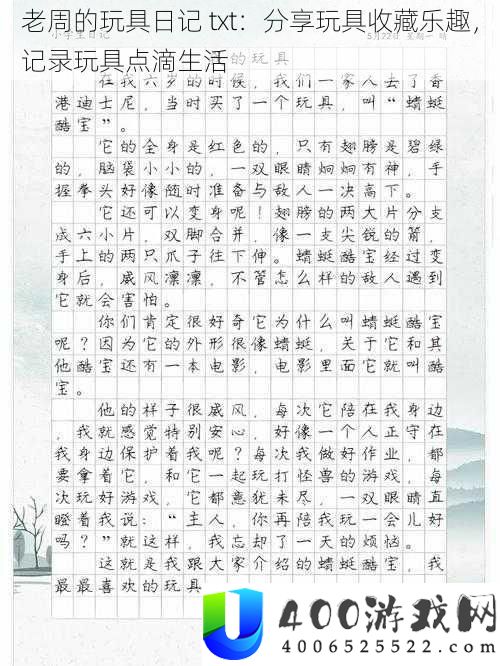 老周的玩具日记 txt：分享玩具收藏乐趣，
记录玩具点滴生活
小学生日记
5月22日 星期一 晴
的玩具
在我六岁的时候，我们一家人去了香
港迪士尼，当时买了一个玩具，叫“蜻蜓
酷宝”。
它的全身是红色的，只有翅膀是碧绿
的，脑袋小小的，一双眼睛炯炯有神，手
握拳头好像随时准备与敌人一决高下。
它还可以变身呢！翅膀的两大片分支
成六小片，双脚合并，像一支尖锐的箭，
手上的两只爪子往下伸。蜻蜓酷宝经过变
身后，威风凛凛，不管怎么样的敌人遇到
它就会害怕。
你们肯定很好奇它为什么叫蜻蜓酷宝
呢？因为它的外形很像蜻蜓，关于它和其
他酷宝还有一本电影，电影里面它就叫酷
宝。
他的样子很威风，每次它陪在我身边
，我就感觉特别安心，好像一个人正守在
我身边保护着我呢？每次我做好作业，都
要拿着它，和它一起玩打怪兽的游戏，每
次玩好游戏，它都意犹未尽，一双眼睛直
瞪着我说：“主人，你再陪我玩一会儿好
吗？”就这样，我忘却了一天的烦恼。
这就是我跟大家介绍的蜻蜓酷宝，我
最最喜欢的玩具
400游戏网
4006525522.com